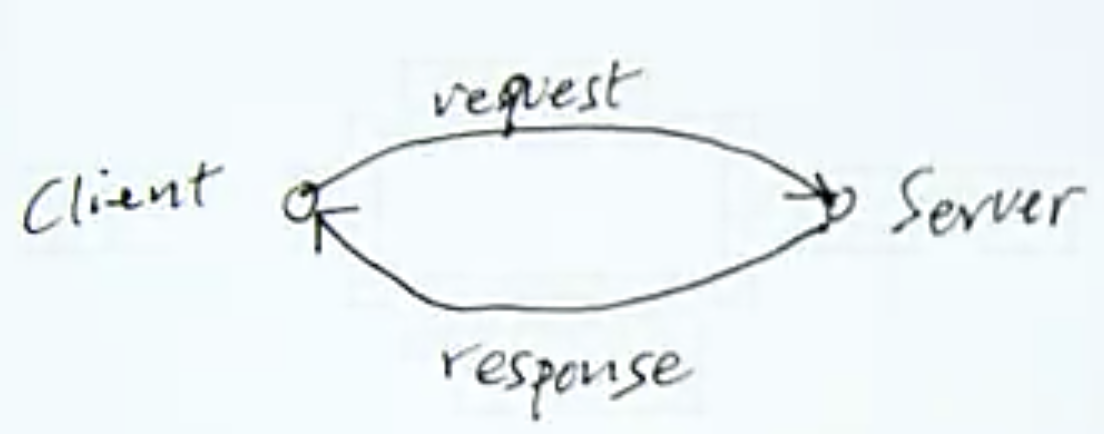 request
Client
Server
response